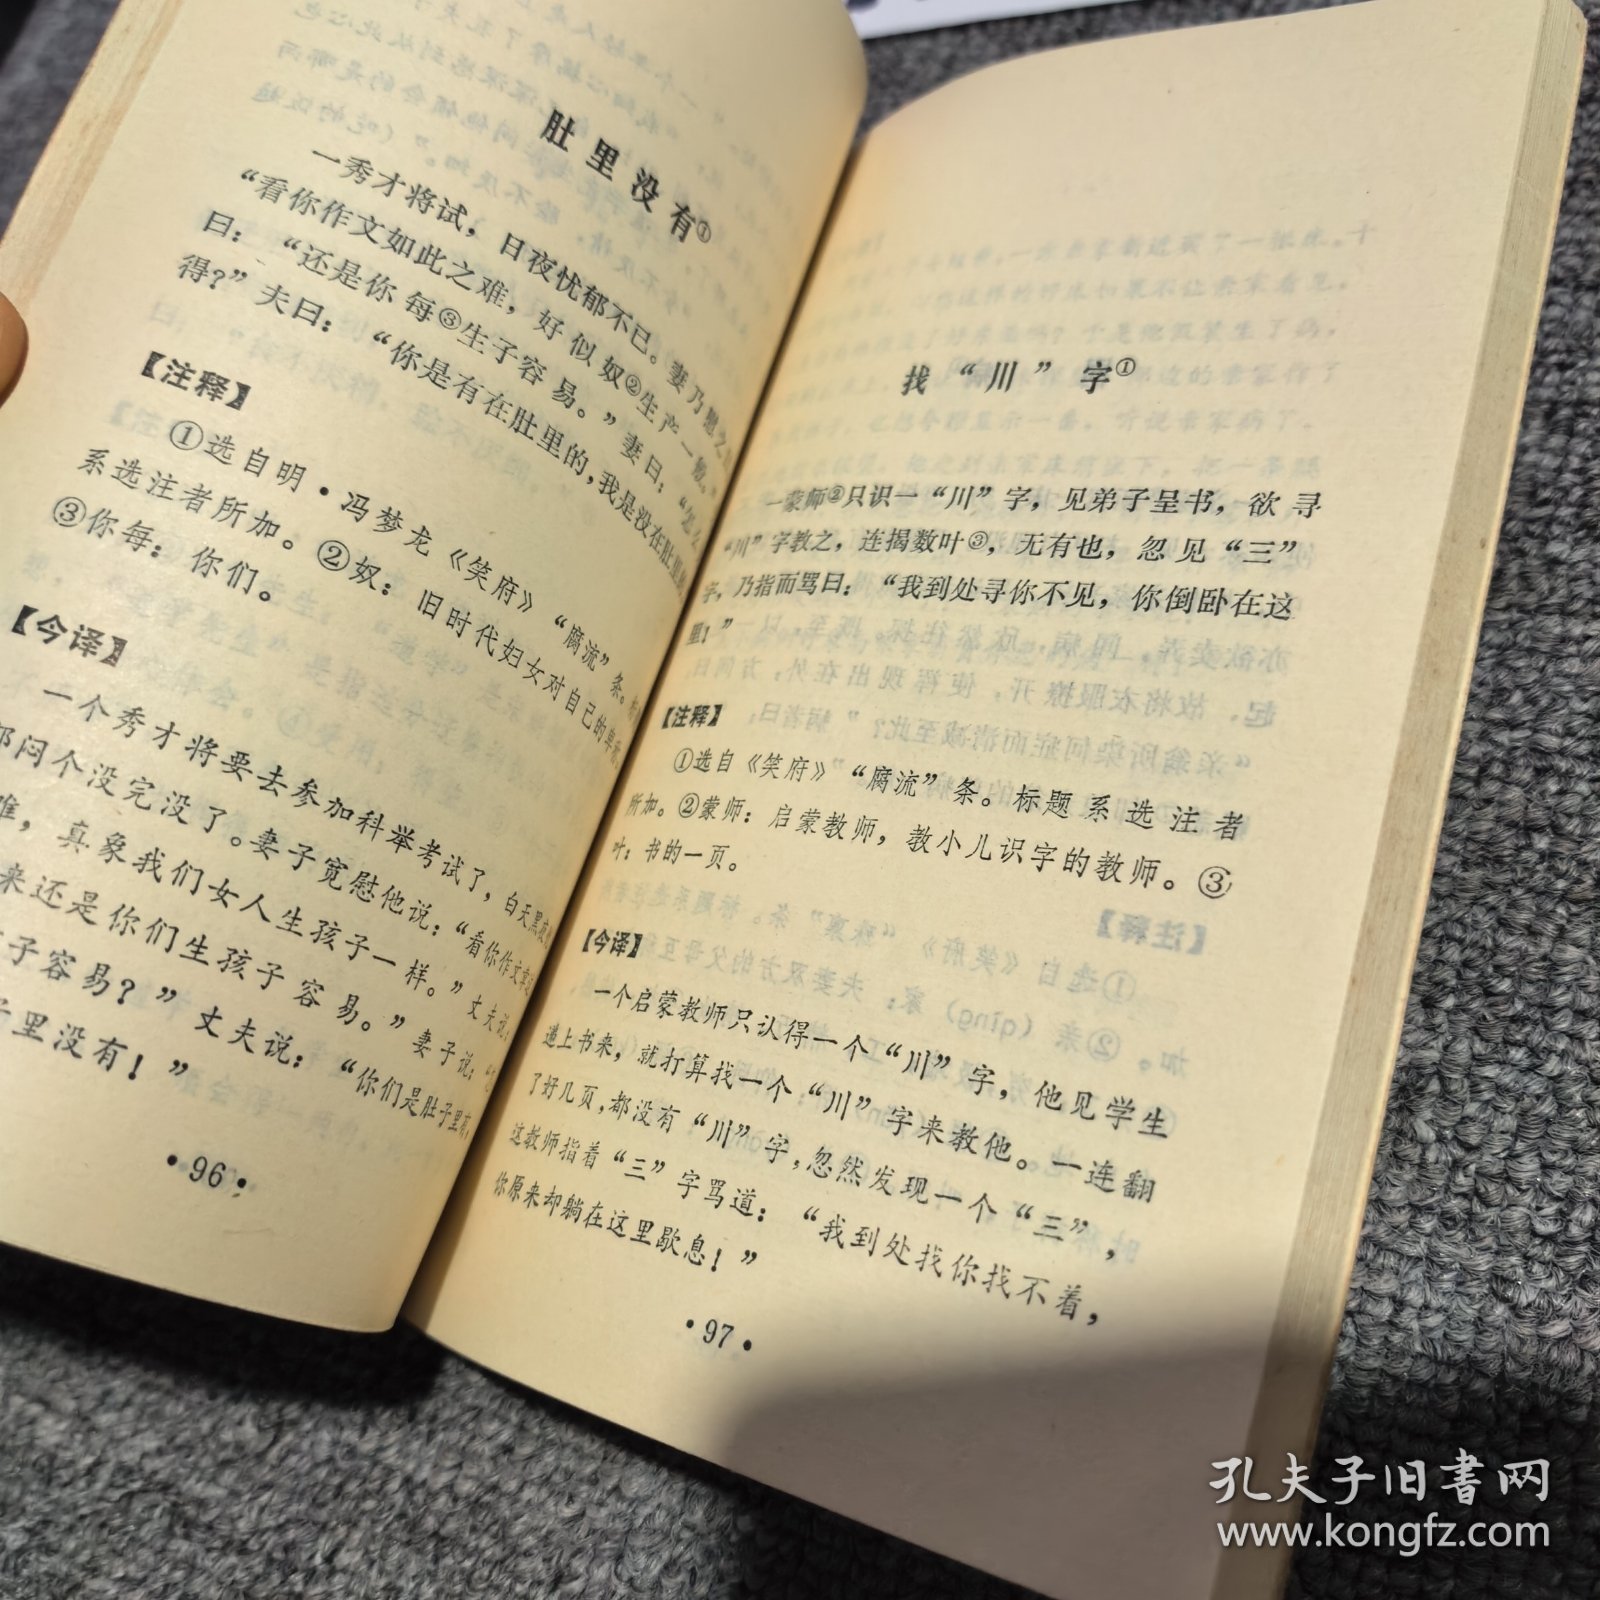 肚里没有①
一秀才将试，日夜忧郁不已。妻乃慰之
“看你作文如此之难，好似奴②生产一般。”
曰：“还是你每③生子容易。”妻曰：“怎么
得？”夫曰：“你是有在肚里的，我是没在肚里
【注释】
①选自明·冯梦龙《笑府》“腐流”条。标
系选注者所加。②奴：旧时代妇女对自己的
③你每：你们。
【今译】
一个秀才将要去参加科举考试了，白天黑夜
闷个没完没了。妻子宽慰他说：“看你作文章
难，真象我们女人生孩子一样。”丈夫说：
来还是你们生孩子容易。”妻子说：
子容易？”丈夫说：“你们是肚子里有，
子里没有！”
·96·
找“川”字①
一蒙师②只识一“川”字，见弟子呈书，欲寻
“川”字教之，连揭数叶③，无有也，忽见“三”
字，乃指而骂曰：“我到处寻你不见，你倒卧在这
里！”
【注释】
①选自《笑府》“腐流”条。标题系选注者
所加。②蒙师：启蒙教师，教小儿识字的教师。③
叶：书的一页。
【今译】
一个启蒙教师只认得一个“川”字，他见学生
递上书来，就打算找一个“川”字来教他。一连翻
了好几页，都没有“川”字，忽然发现一个“三”，
这教师指着“三”字骂道：“我到处找你找不着，
你原来却躺在这里歇息！”
·97·
孔夫子旧书网
www.kongfz.com